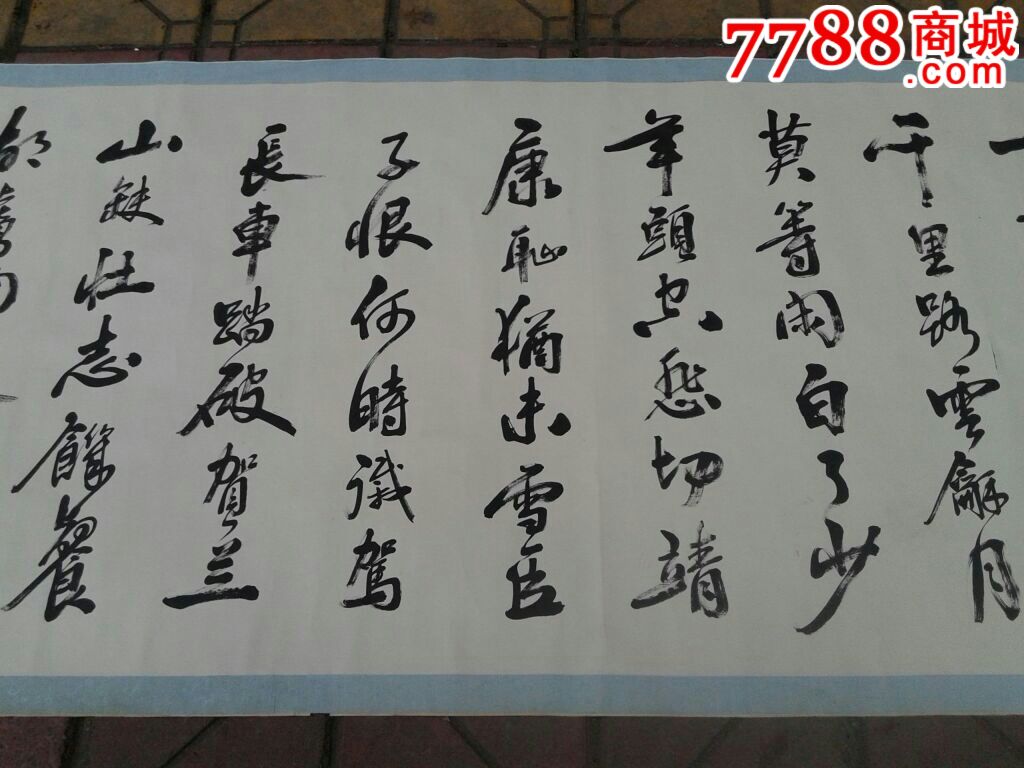 7788商城
.com
千里路雲龢月
莫等闲白了少
年頭空悲切靖
康恥猶未雪臣
子恨何時滅駕
長車踏破賀兰
山缺壮志饑餐